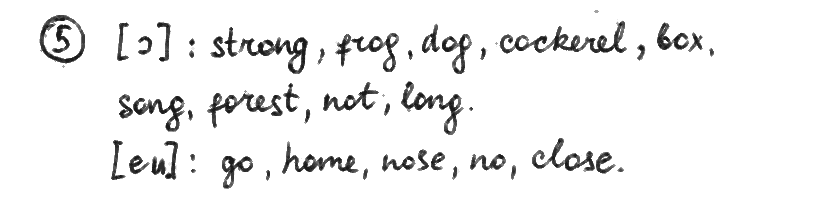 ⑤ [ɔ] : strong, frog, dog, cockerel, box,
song, forest, not, long.
[eu] : go, home, nose, no, close.